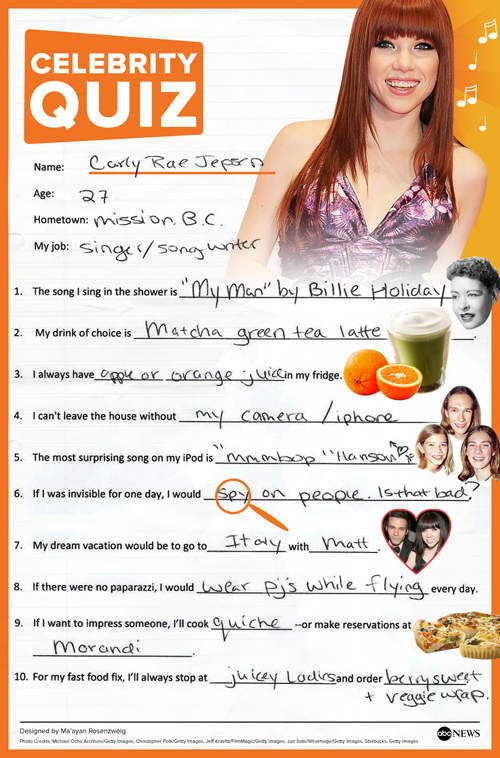 CELEBRITY
QUIZ
Name: Carly Rae Jepsen
Age: 27
Hometown: mission. B.C.
My job: singer/songwriter
1. The song I sing in the shower is "My Man" by Billie Holiday
2. My drink of choice is Matcha green tea latte.
3. I always have apple or orange juice in my fridge.
4. I can't leave the house without my camera / iphone
5. The most surprising song on my iPod is "mmmbop" "Hanson"
6. If I was invisible for one day, I would spy on people. Is that bad?
7. My dream vacation would be to go to Italy with Matt.
8. If there were no paparazzi, I would wear pj's while flying every day.
9. If I want to impress someone, I'll cook quiche --or make reservations at
Morandi.
10. For my fast food fix, I'll always stop at juicey Ladies and order berry sweet
+ veggie wrap.
Designed by Ma'ayan Rosenzweig
Photo Credits: Michael Ochs Archives/Getty Images, Christopher Polk/Getty Images, Jeff Kravitz/FilmMagic/Getty Images, Jun Sato/WireImage/Getty Images, Starbucks, Getty Images
abc NEWS